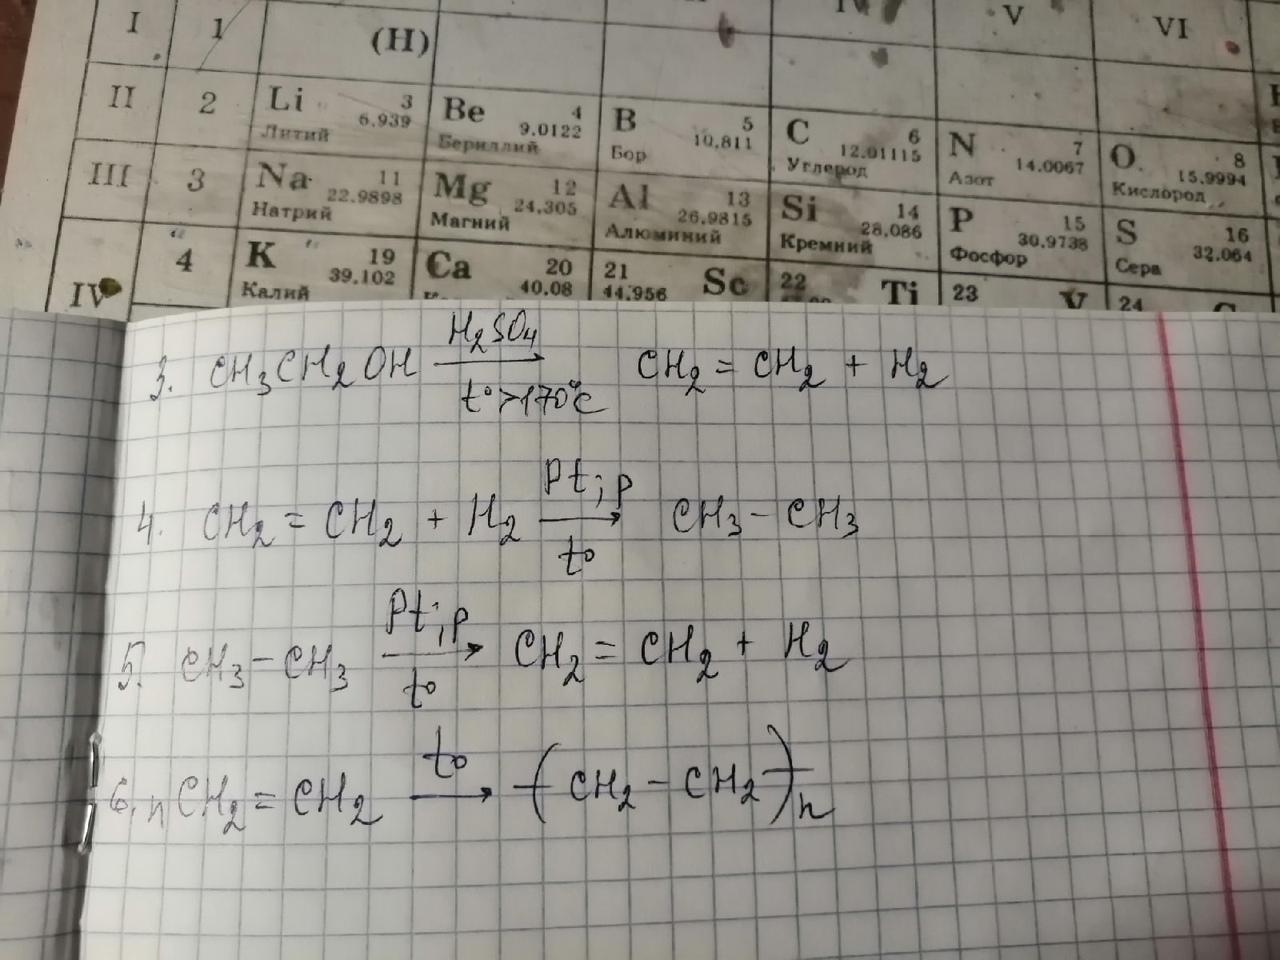 I 1 (H) IV V VI
II 2 Li 3 6.939 Литий Be 4 9.0122 Бериллий B 5 10,811 Бор C 6 12.01115 Углерод N 7 14.0067 Азот O 8 15.9994 Кислород
III 3 Na 11 22.9898 Натрий Mg 12 24,305 Магний Al 13 26,9815 Алюминий Si 14 28,086 Кремний P 15 30,9738 Фосфор S 16 32,064 Сера
IV 4 K 19 39,102 Калий Ca 20 40.08 21 44,956 Sc 22 Ti 23 V 24
3. CH3CH2OH H2SO4 → t°>170°C CH2 = CH2 + H2
4. CH2 = CH2 + H2 Pt; p → t° CH3 - CH3
5. CH3 - CH3 Pt; p → t° CH2 = CH2 + H2
6. nCH2 = CH2 t° → -( CH2 - CH2 )-n